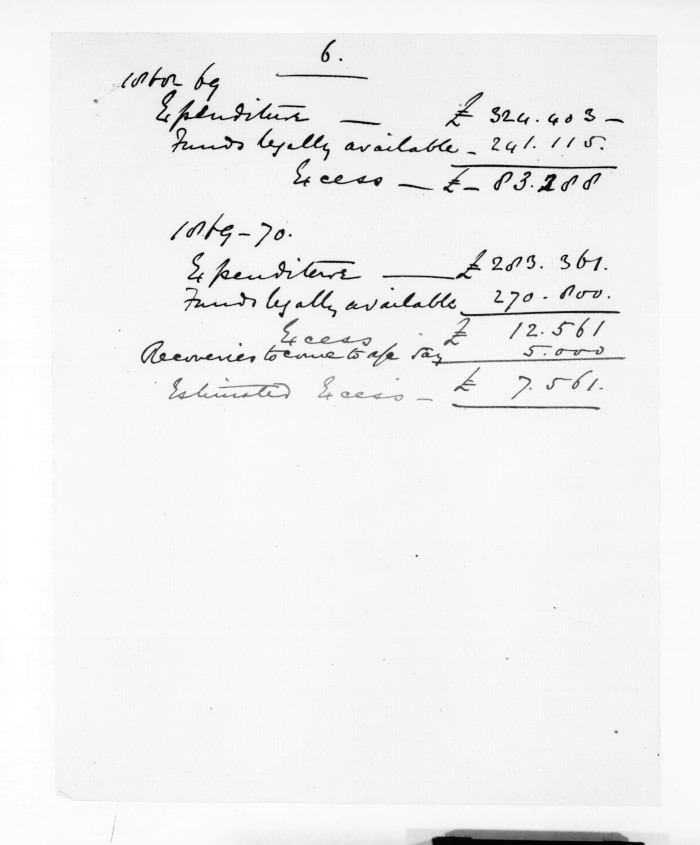 6.
1868 69
Expenditure — £ 324.403 —
Funds legally available - 241.115.
Excess — £ - 83.288
1869-70.
Expenditure — £ 283.361.
Funds legally available 270.800.
Excess £ 12.561
Recoveries to come to a/c say 5.000
Estimated Excess — £ 7.561.